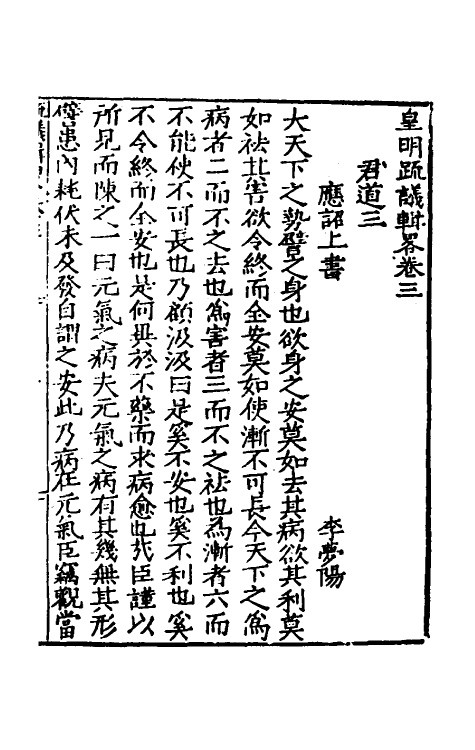 皇明疏議輯畧卷三
君道三
應詔上書　李夢陽
大天下之勢譬之身也欲身之安莫如去其病欲其利莫
如祛其害欲令終而全安莫如使漸不可長今天下之爲
病者二而不之去也爲害者三而不之祛也爲漸者六而
不能使不可長也乃顧汲汲曰是奚不安也奚不利也奚
不令終而全安也是何異於不藥而求病愈也哉臣謹以
所見而陳之一曰元氣之病夫元氣之病有其幾無其形
譬患內耗伏未及發自謂之安此乃病在元氣臣竊觀當